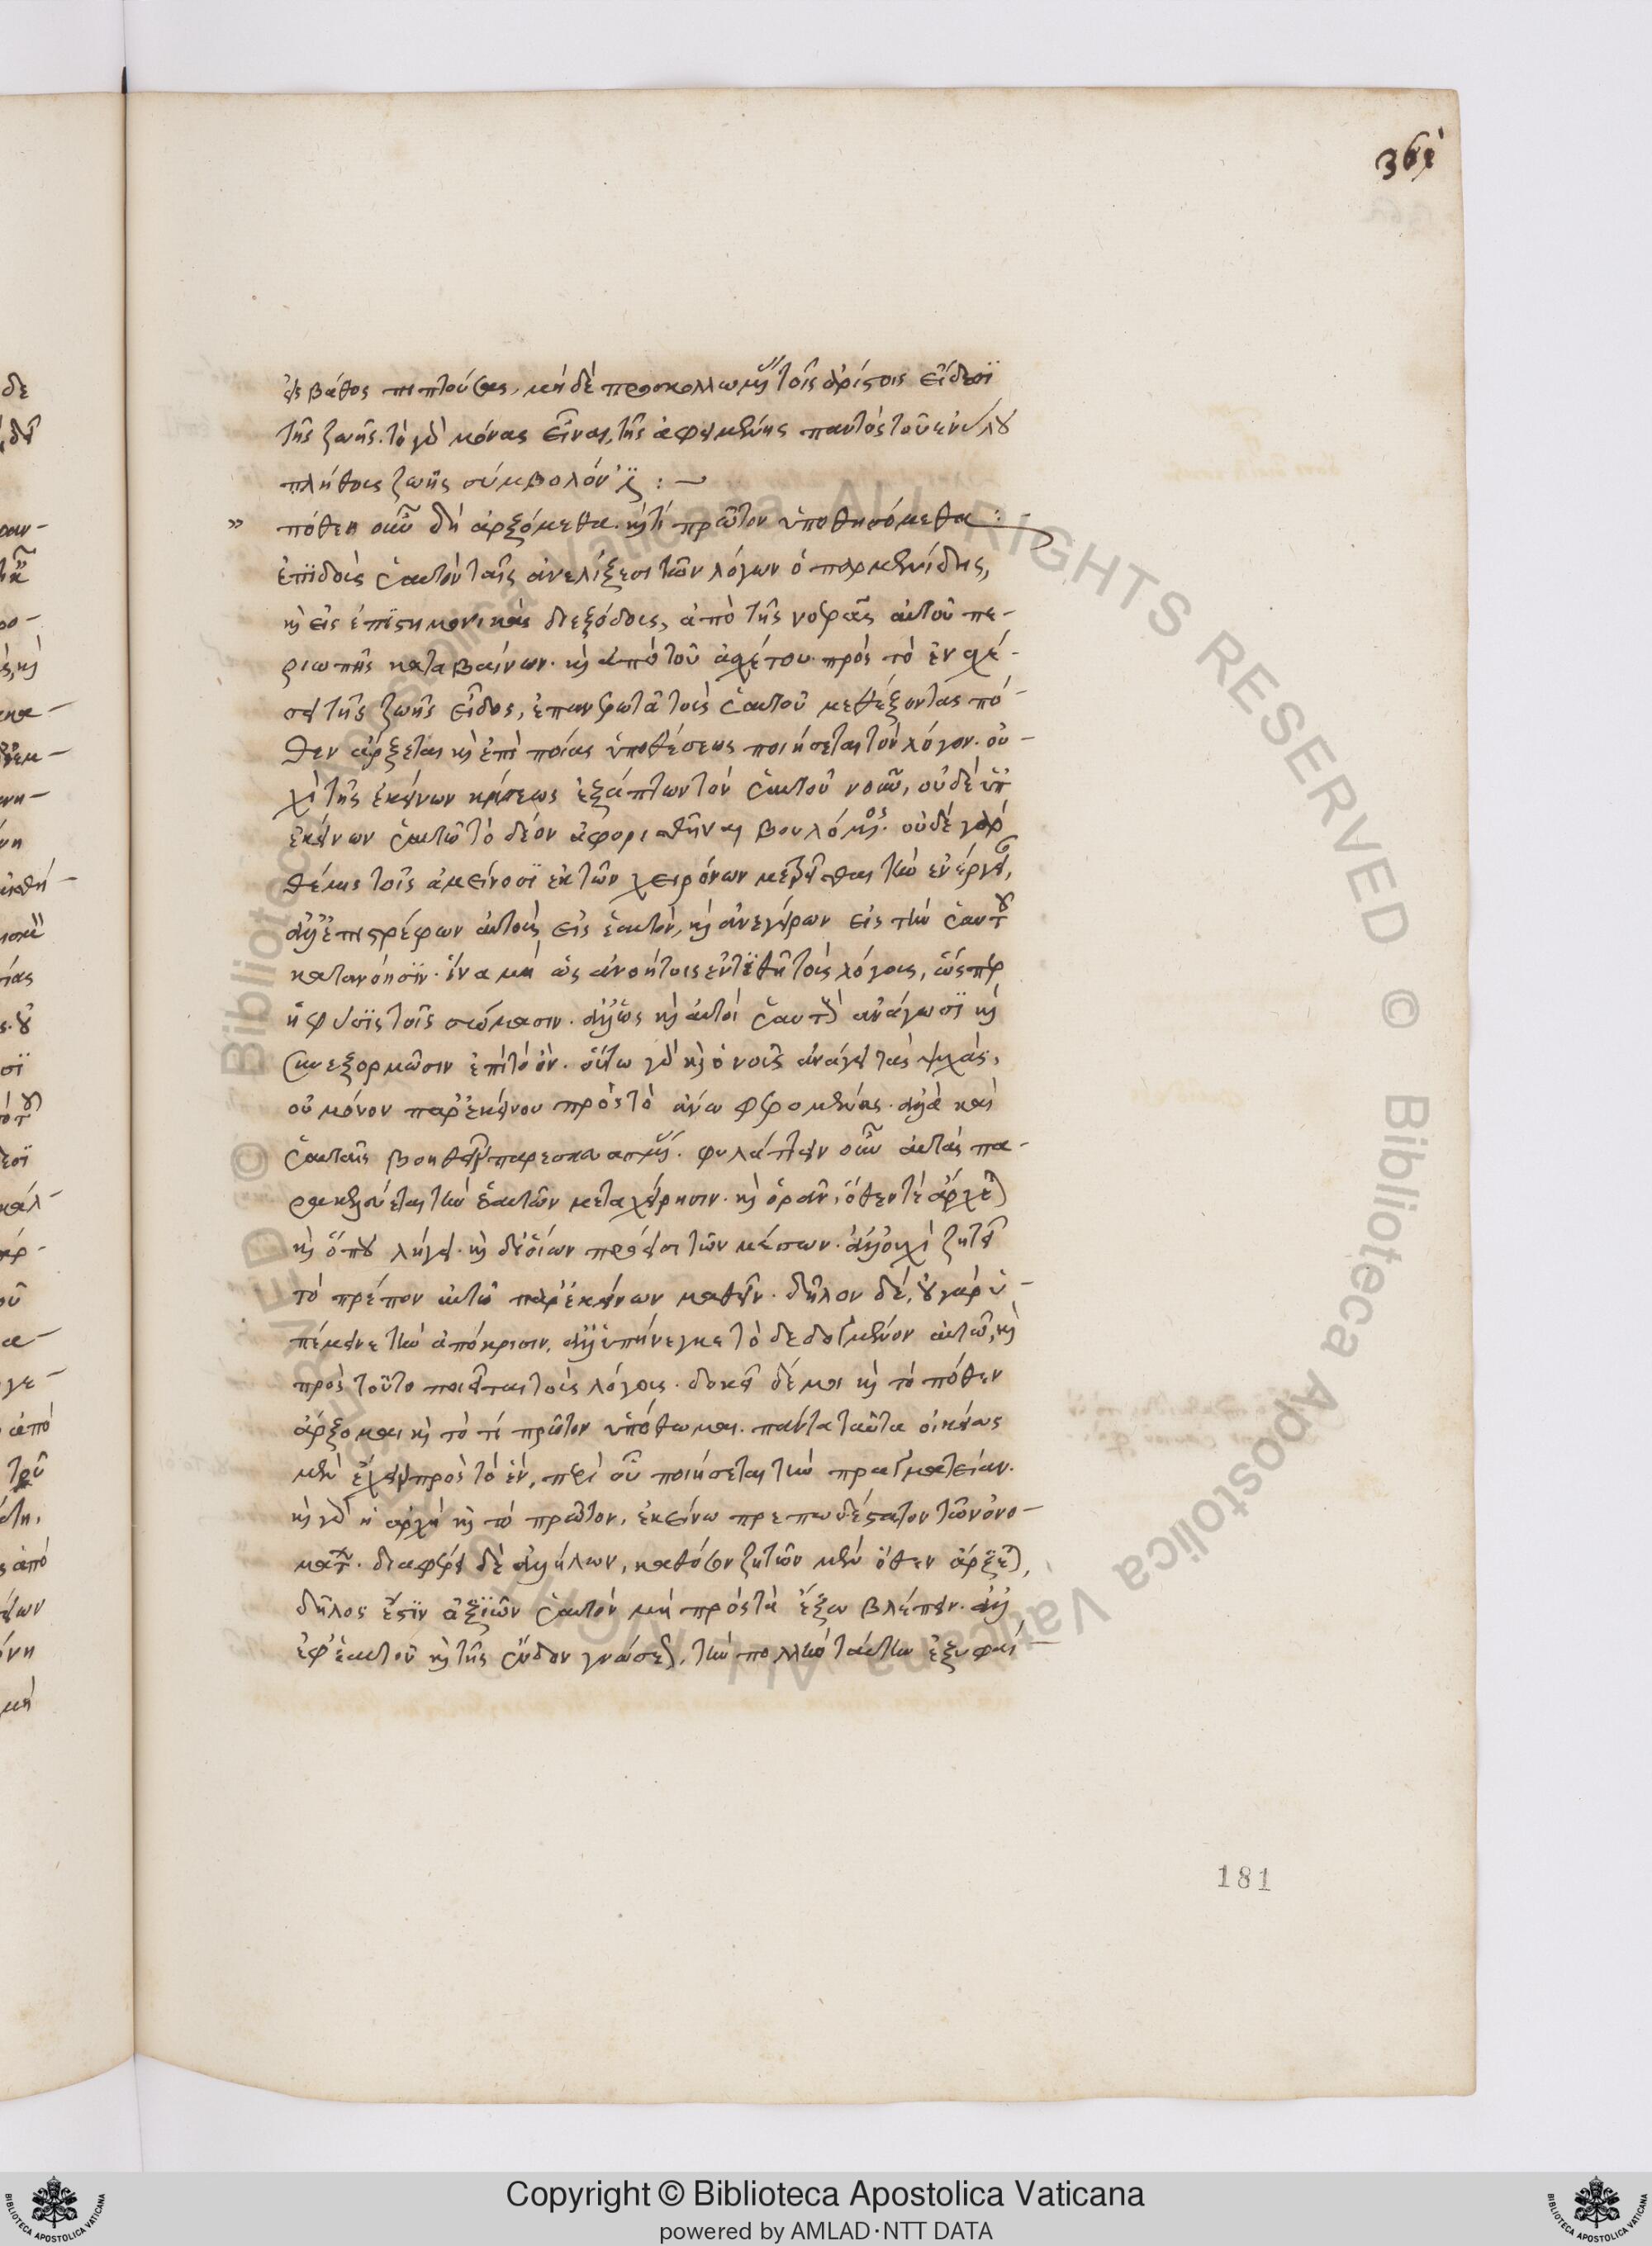 361
εἰς βάθος πιπτούσης, μὴ δὲ προσκολλωμένης τοῖς ἀρίστοις εἴδεσϊ
τῆς ζωῆς. τὸ γὰρ μόνας εἶναι, τῆς ἀφειμένης παντὸς τοῦ ἐνύλου
πλήθους ζωῆς σύμβολόν ἐστι : —
" πόθεν οὖν δὴ ἀρξόμεθα. καὶ τί πρῶτον ὑποθησόμεθα :
ἐπϊδοὺς ἑαυτὸν ταῖς ἀνελίξεσι τῶν λόγων ὁ παρμενίδης,
καὶ εἰς ἐπϊστημονικὰς διεξόδους, ἀπὸ τῆς νοερᾶς αὐτοῦ πε-
ριωπῆς καταβαίνων. καὶ ἀπὸ τοῦ ἀσχέτου πρὸς τὸ ἐν σχέ-
σει τῆς ζωῆς εἶδος, ἐπανερωτᾶ τοὺς ἑαυτοῦ μεθέξοντας πό-
θεν ἄρξεται καὶ ἐπὶ ποίας ὑποθέσεως ποιήσεται τὸν λόγον. οὐ-
χὶ τῆς ἐκείνων κρίσεως ἐξάπτων τὸν ἑαυτοῦ νοῦν, οὐδὲ ὑπ'
ἐκείνων ἑαυτῶ τὸ δέον ἀφορισθῆναι βουλόμενος. οὐδὲ γὰρ
θέμις τοῖς ἀμείνοσϊ ἐκ τῶν χειρόνων μετρεῖσθαι τὴν ἐνέργειαν,
ἀλλ' ἐπιστρέφων αὐτοὺς εἰς ἑαυτὸν, καὶ ἀνεγείρων εἰς τὴν ἑαυτοῦ
κατανόησϊν. ἵνα μὴ ὡς ἀνοήτοις ἐντϊθῆ τοὺς λόγους, ὥσπερ
ἡ φύσϊς τοῖς σώμασιν. ἀλλ' ὡς καὶ αὐτοὶ ἑαυτοὺς ἀνάγωσϊ καὶ
συνεξορμῶσιν ἐπὶ τὸ ὄν. οὕτω γὰρ καὶ ὁ νοῦς ἀνάγει τὰς ψυχὰς,
οὐ μόνον παρ' ἐκείνου πρὸς τὸ ἄνω φερομένας. ἀλλὰ καὶ
ἑαυταῖς βοηθεῖν παρεσκευασμένας. φυλάττειν οὖν αὐτὰς πα-
ρακελεύεται τὴν ἑαυτῶν μεταχείρησιν. καὶ ὁρᾶν, ὅθεν τὲ ἄρχεται
καὶ ὅπου λήγει. καὶ δι' οἵων πρόεισι τῶν μέσων. ἀλλ' οὐχὶ ζητεῖ
τὸ πρέπον αὐτῶ παρ' ἐκείνων μαθεῖν. δῆλον δὲ, οὐ γὰρ ὑ-
πέμεινε τὴν ἀπόκρισιν, ἀλλ' ὑπήνεγκε τὸ δεδογμένον αὐτῶ, καὶ
πρὸς τοῦτο ποιεῖται τοὺς λόγους. δοκεῖ δέ μοι καὶ τὸ πόθεν
ἄρξομαι καὶ τὸ τί πρῶτον ὑπόθωμαι. πάντα ταῦτα οἰκείως
μὲν ἔχειν πρὸς τὸ ἓν, περὶ οὗ ποιήσεται τὴν πραγματείαν.
καὶ γὰρ ἡ ἀρχὴ καὶ τὸ πρῶτον, ἐκείνω πρεπωδέστατον τῶν ὀνο-
μάτων. διαφέρει δὲ ἀλλήλων, καθόσον ζητῶν μὲν ὅθεν ἄρξεται,
δῆλος ἔστϊν ἀξϊῶν ἑαυτὸν μὴ πρὸς τὰ ἔξω βλέπειν. ἀλλ'
ἐφ' ἑαυτοῦ καὶ τῆς ἔνδον γνώσεως, τὴν πολλὴν ταύτην ἐξυφαί-
181
Copyright © Biblioteca Apostolica Vaticana
powered by AMLAD·NTT DATA